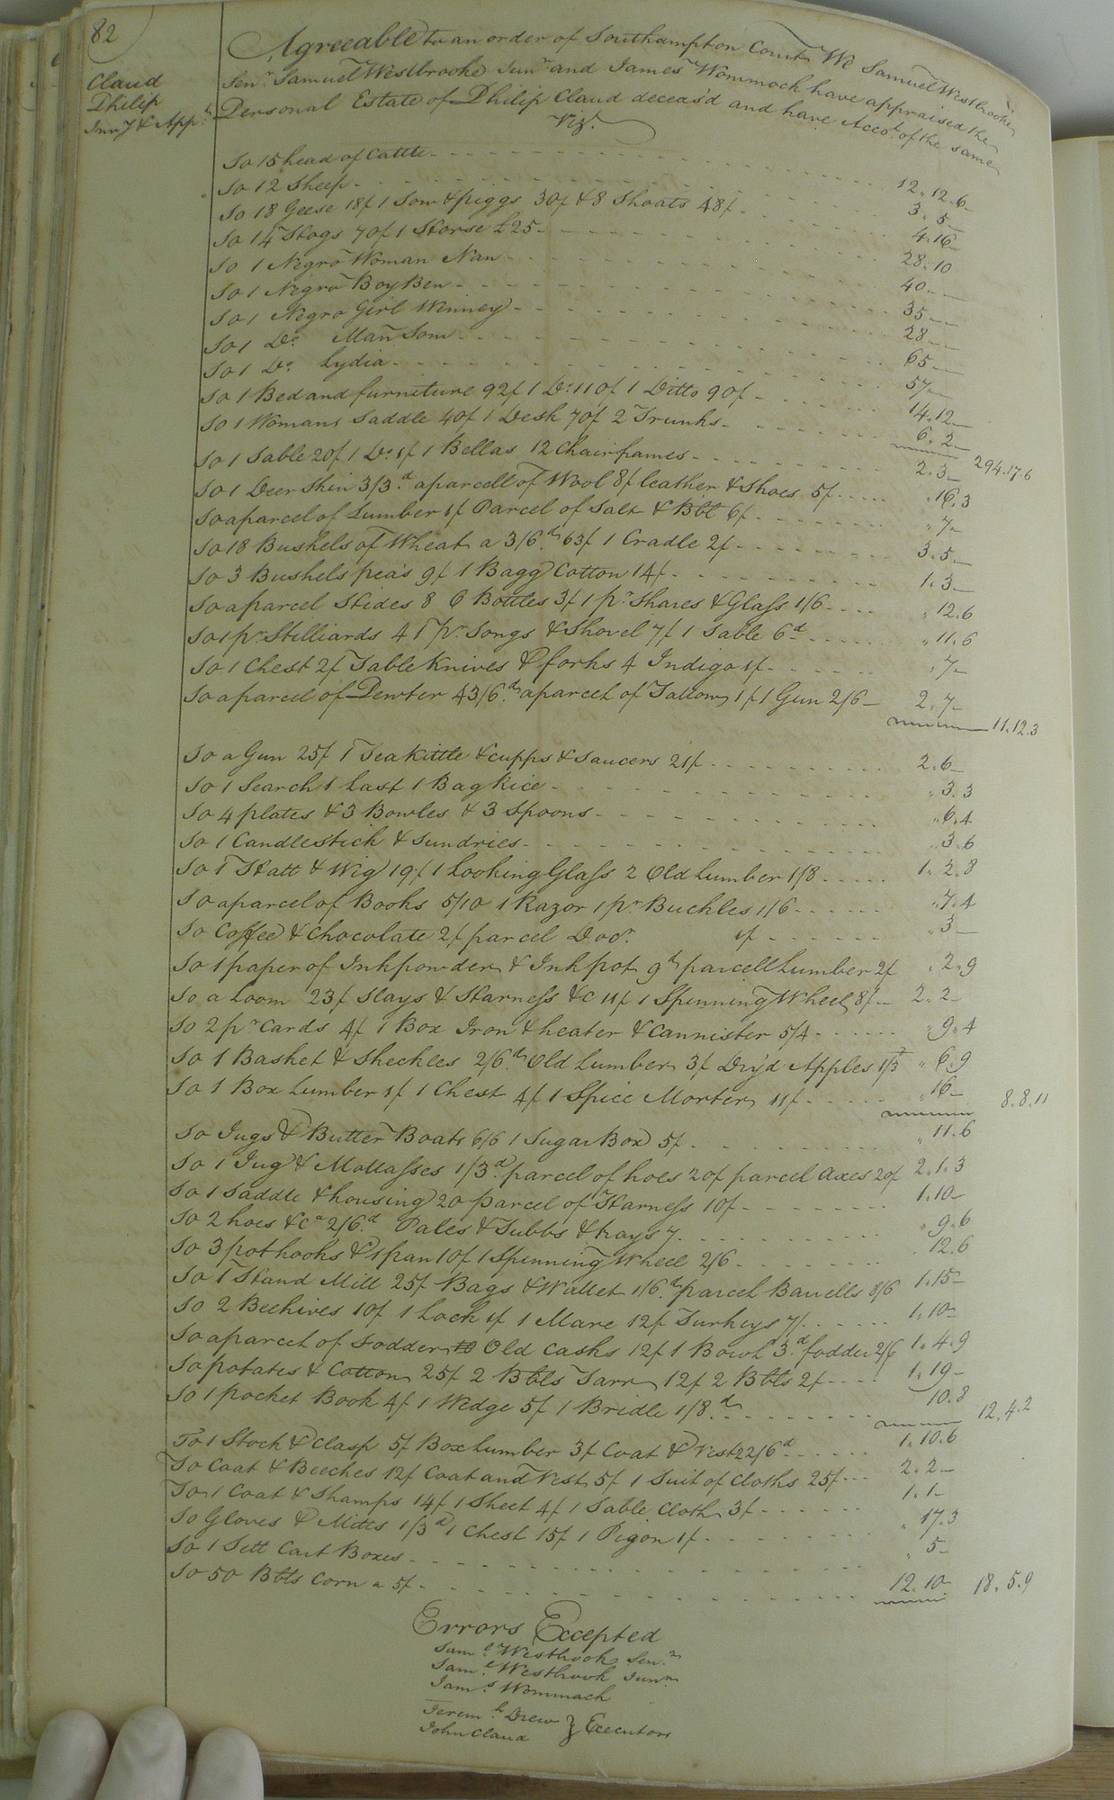 82
Claud
Philip
Inv.y & App.t
Agreeable to an order of Southampton Court We Samuel Westbrooke
Sen.r Samuel Westbrooke Jun.r and James Wommock have appraised the
Personal Estate of Philip Claud deceas'd and have Acco.t of the same
Viz.t
To 15 head of Cattle 12.12.6
To 12 Sheep 3.5
To 18 Geese 18/ 1 Sow & piggs 30/ & 8 Shoats 48/ 4.16
To 14 Hogs 70/ 1 Horse £25 28.10
To 1 Negro Woman Nan 40
To 1 Negro Boy Ben 35
To 1 Negro Girl Winney 28
To 1 Do. Man Tom 65
To 1 Do. Lydia 57
To 1 Bed and furniture 92/ 1 Do. 110/ 1 Ditto 90/ 14.12
To 1 Womans Saddle 40/ 1 Desk 70/ 2 Trunks 6.2
294.17.6
To 1 Table 20/ 1 Do. 1/ 1 Bellas 12 Chair frames 2.3
To 1 Deer Skin 3/3.d a parcell of Wool 8/ leather & Shoes 5/ 16.3
To a parcel of Lumber 1/ Parcel of Salt & Bbl 6/ 7
To 18 Bushels of Wheat a 3/6.d 63/ 1 Cradle 2/ 3.5
To 3 Bushels pea's 9/ 1 Bagg Cotton 14/ 1.3
To a parcel Hides 8 6 Bottles 3/ 1 p.r Shares & Glass 1/6 12.6
To 1 p.r Stilliards 4 1 p.r Tongs & Shovel 7/ 1 Table 6.d 11.6
To 1 Chest 2/ Table Knives & forks 4 Indigo 1/ 7
To a parcel of Pewter 43/6.d a parcel of Tallow 1/ 1 Gun 2/6 2.7
11.12.3
To a Gun 25/ 1 Tea Kittle & cupps & Saucers 21/ 2.6
To 1 Search 1 Last 1 Bag Rice 3.3
To 4 plates & 3 Bowles & 3 Spoons 6.4
To 1 Candlestick & Sundries 3.6
To 1 Hatt & Wig 19/ 1 Looking Glass 2 Old Lumber 1/8 1.2.8
To a parcel of Books 5/10 1 Razor 1 p.r Buckles 1/6 7.4
To Coffee & Chocolate 2/ parcel Do.o 1/ 3
To 1 paper of Inkpowder & Ink pot 9.d parcell Lumber 2/ 2.9
To a Loom 23/ Slays & Harness &c 11/ 1 Spinning Wheel 8/ 2.2
To 2 p.r Cards 4/ 1 Box Iron & heater & Cannister 5/4 9.4
To 1 Basket & Sheckles 2/6.d Old Lumber 3/ Dry'd Apples 1/3 6.9
To 1 Box Lumber 1/ 1 Chest 4/ 1 Spice Morter 11/ 16
8.8.11
To Jugs & Butter Boats 6/6 1 Sugar Box 5/ 11.6
To 1 Jug & Mollasses 1/3.d parcel of hoes 20/ parcel Axes 20/ 2.1.3
To 1 Saddle & housing 20 parcel of Harness 10/ 1.10
To 2 hoes &c.a 2/6.d Pales & Tubbs & trays 7 9.6
To 3 pot hooks & 1 pan 10/ 1 Spinning Wheel 2/6 12.6
To 1 Hand Mill 25/ Bags & Wallet 1/6.d parcel Barrells 8/6 1.15
To 2 Beehives 10/ 1 Lock 1/ 1 Mare 12/ Turkeys 7/ 1.10
To a parcel of Fodder to Old Casks 12/ 1 Bowl 3.d fodder 2/6 1.4.9
To potates & Cotton 25/ 2 Bbls Tarr 12/ 2 Bbls 2/ 1.19
To 1 pocket Book 4/ 1 Wedge 5/ 1 Bridle 1/8.d 10.8
12.4.2
To 1 Stock & Clasp 5/ Box Lumber 3/ Coat & Vest 22/6.d 1.10.6
To Coat & Beeches 12/ Coat and Vest 5/ 1 Suit of Cloths 25/ 2.2
To 1 Coat & Shamps 14/ 1 Sheet 4/ 1 Table Cloth 3/ 1.1
To Gloves & Mitts 1/3.d 1 Chest 15/ 1 Pigon 1/ 17.3
To 1 Sett Cart Boxes 5
To 50 Bbls Corn a 5/ 12.10
18.5.9
Errors Excepted
Sam.l Westbrook Sen.r
Sam.l Westbrook Jun.r
Jam.s Wommack
Jerem.h Drew } Executors
John Claud